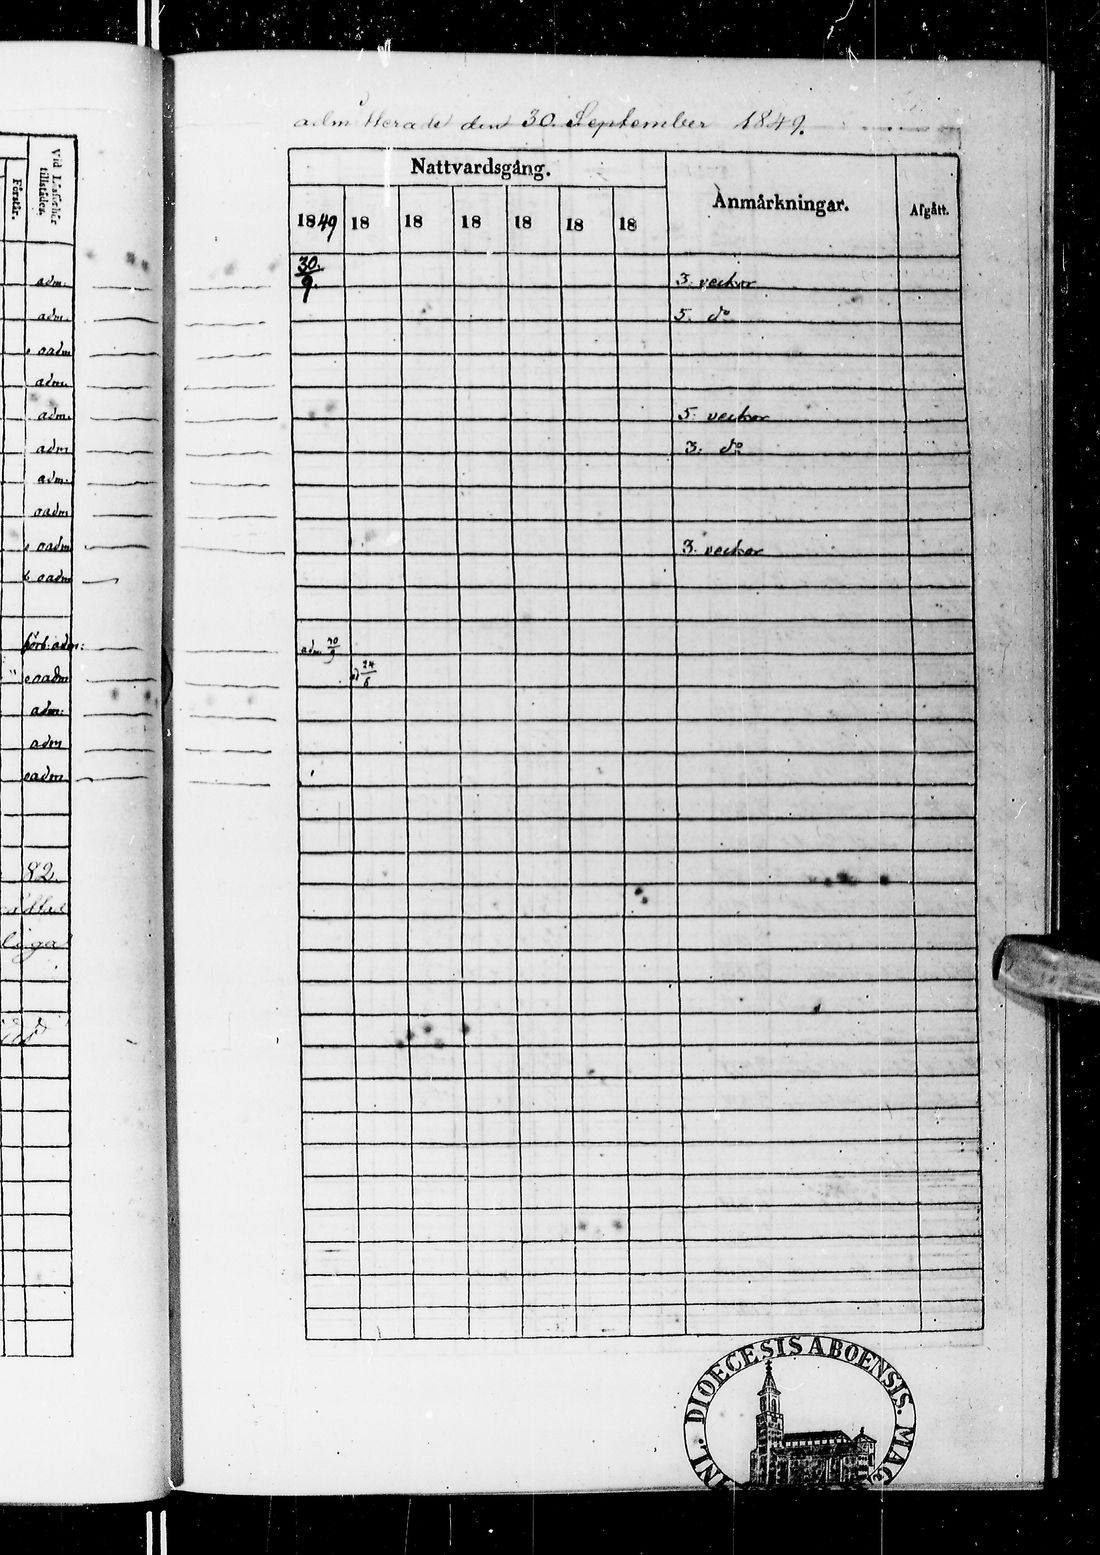 admitterade den 30. September 1849.
Vid Läseförhör tillstådes.
Förstår.
Nattvardsgång.
Anmårkningar.
Afgått.
1849 18 18 18 18 18 18
30./9.
adm. 3. veckor
adm. 5. do
oadm
adm.
adm. 5. veckor
adm 3. do
adm.
oadm
oadm 3. veckor
oadm
förb: adm: adm 30/9
oadm ad 24/6
adm:
adm
oadm
82.
liga
DIOECESIS ABOENSIS. MAG
NL.